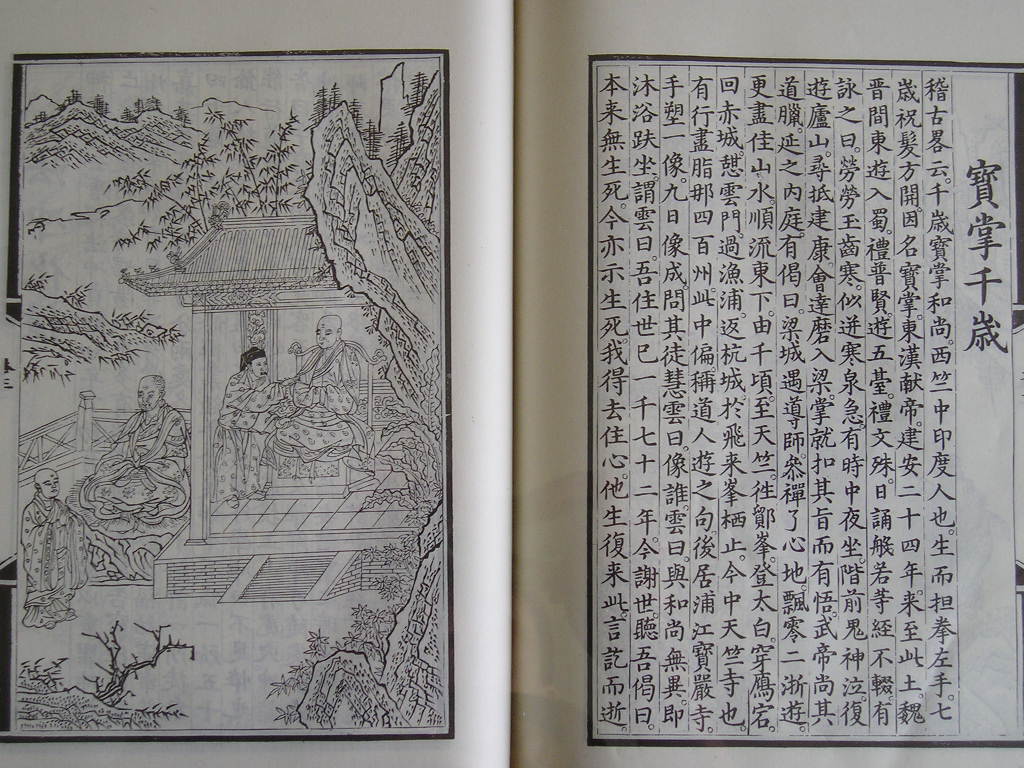 寶掌千歲
稽古畧云。千歲寶掌和尚。西竺中印度人也。生而担拳左手。七
歲祝髮方開。因名寶掌。東漢献帝。建安二十四年。来至此土。魏
晋間東遊入蜀。禮普賢。遊五臺。禮文殊。日誦般若等經不輟。有
詠之曰。勞勞玉齒寒。似迸寒泉急。有時中夜坐。階前鬼神泣。復
遊廬山。尋抵建康。會達磨入梁。掌就扣其旨而有悟。武帝尚其
道臘。延之内庭。有偈曰。梁城遇導師。叅禪了心地。飄零二浙遊。
更盡佳山水。順流東下。由千頃。至天竺。徃鄮峯。登太白。穿鴈宕
回赤城。憇雲門。過漁浦。返杭城。於飛来峯栖止。今中天竺寺也
有行盡脂那四百州。此中偏稱道人遊之句。後居浦江寶嚴寺。
手塑一像。九日像成。問其徒慧雲曰。像誰。雲曰。與和尚無異。即
沐浴趺坐。謂雲曰。吾住世已一千七十二年。今謝世。聽吾偈曰。
本来無生死。今亦示生死。我得去住心。他生復来此。言訖而逝。